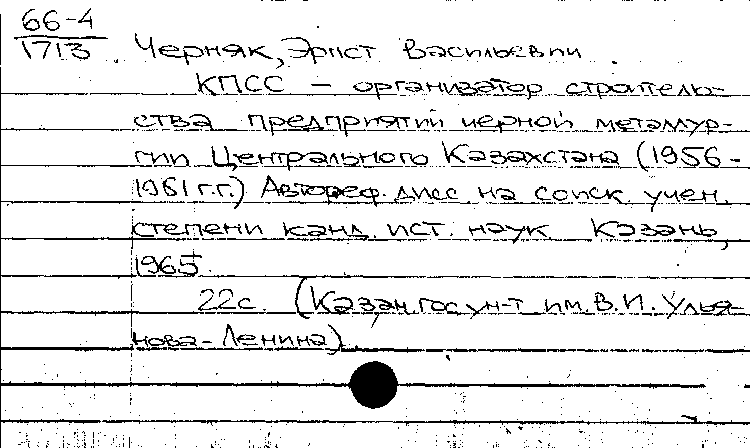 66-4
1713
Черняк, Эрнст Васильевич
КПСС — организатор строитель-
ства предприятий черной металлур-
гии Центрального Казахстана (1956-
1961 г.г.) Автореф. дисс. на соиск. учен.
степени канд. ист. наук Казань,
1965.
22с. (Казан. гос ун-т им. В.И. Улья-
нова-Ленина).